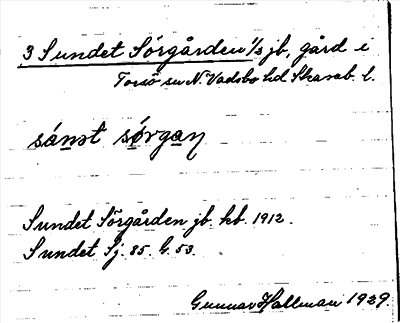 3 Sundet Sörgården 1/3 jb, gård i
Torsö sn N Vadsbo hd Skarab. l.
sánət sǫ́rgaɳ
Sundet Sörgården jb. kb. 1912.
Sundet Sj. 85. G. 53.
Gunnar Hallman 1929.